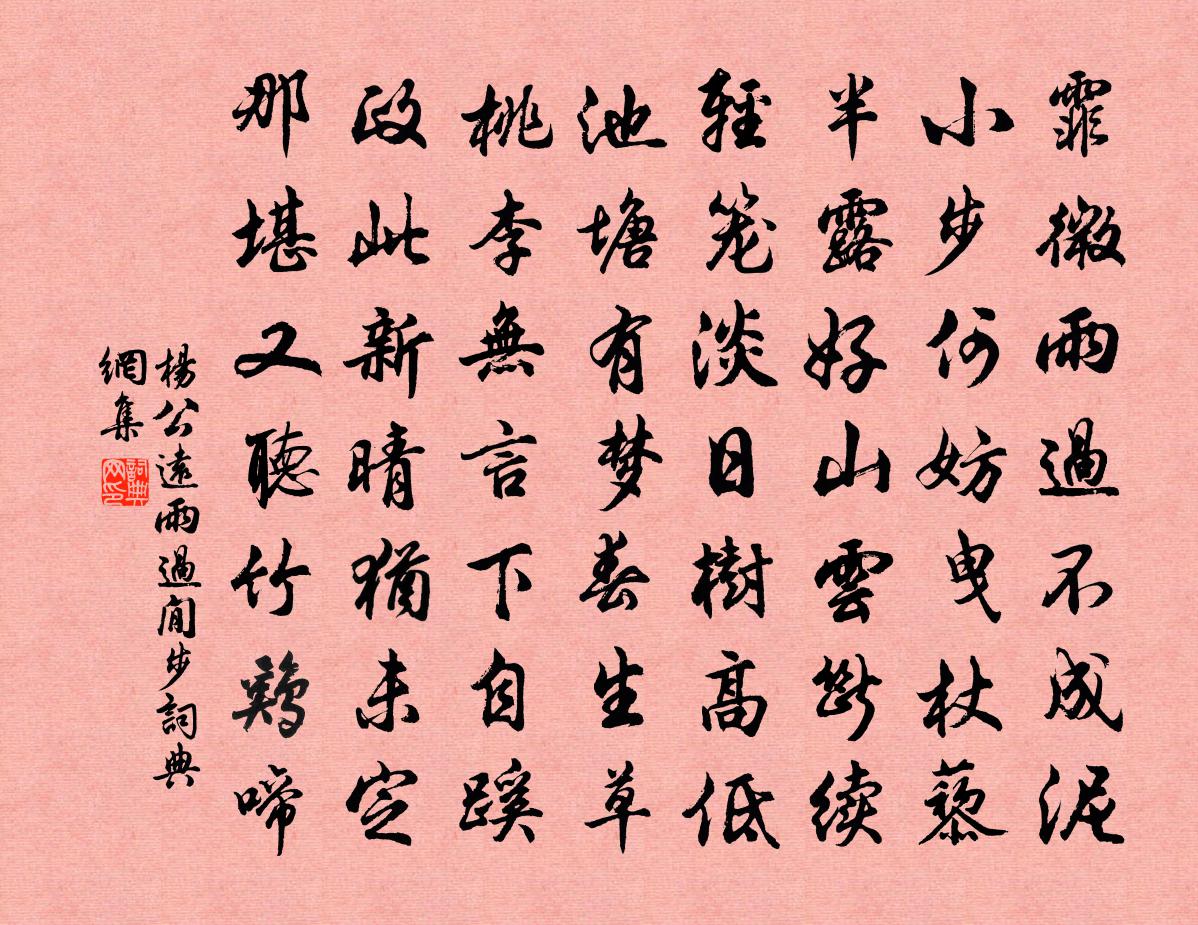 霏微雨過不成泥
小步何妨曳杖藜
半露好山雲斷续
輕笼淡日樹高低
池塘有梦春生草
桃李無言下自蹊
政此新晴猶未定
那堪又聽竹鷄啼
楊公遠雨過閒步詞典
網集
詞典
网印